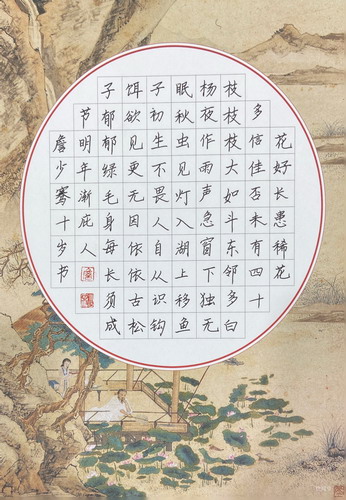 花好长患稀花
多信佳否未有四十
枝枝枝大如斗东邻多白
杨夜作雨声急窗下独无
眠秋虫见灯入湖上移鱼
子初生不畏人自从识钩
饵欲见更无因依依古松
子郁郁绿毛身每长须成
节明年渐庇人
詹少骞十岁书